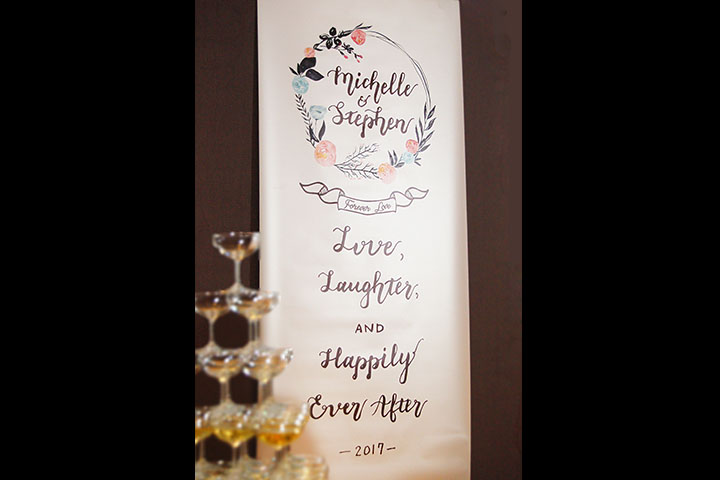 Michelle
&
Stephen
Forever Love
Love,
Laughter,
AND
Happily
Ever After
-2017-